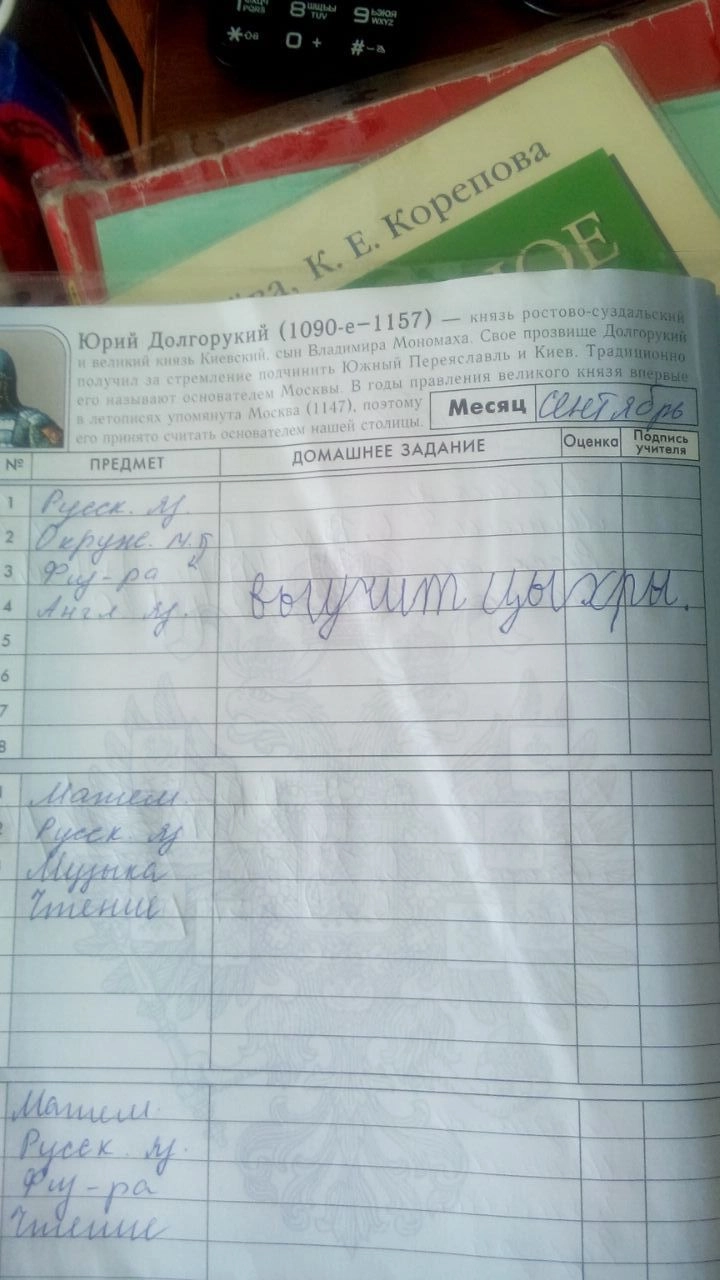 8 шщъы 9 ьэюя
PQRS TUV WXYZ
0 +
К. Е. Корепова
Юрий Долгорукий (1090-е–1157) — князь ростово-суздальский
и великий князь Киевский, сын Владимира Мономаха. Свое прозвище Долгорукий
получил за стремление подчинить Южный Переяславль и Киев. Традиционно
его называют основателем Москвы. В годы правления великого князя впервые
в летописях упомянута Москва (1147), поэтому
его принято считать основателем нашей столицы.
Месяц Сентябрь
№ ПРЕДМЕТ ДОМАШНЕЕ ЗАДАНИЕ Оценка Подпись учителя
1 Русск. яз.
2 Окруж. м.
3 Физ-ра
4 Англ яз. выучит цыхры.
5
6
7
8
Матем.
Русск. яз
Музыка
Чтение
Матем.
Русск. яз.
Физ-ра
Чтение